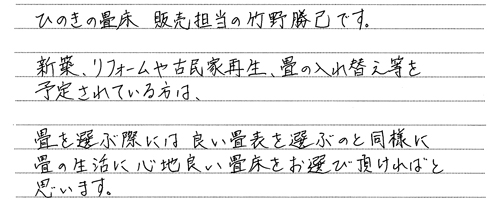 ひのきの畳床 販売担当の竹野勝己です。
新築、リフォームや古民家再生、畳の入れ替え等を
予定されている方は、
畳を選ぶ際には 良い畳表を選ぶのと同様に
畳の生活に 心地良い畳床をお選び頂ければと
思います。